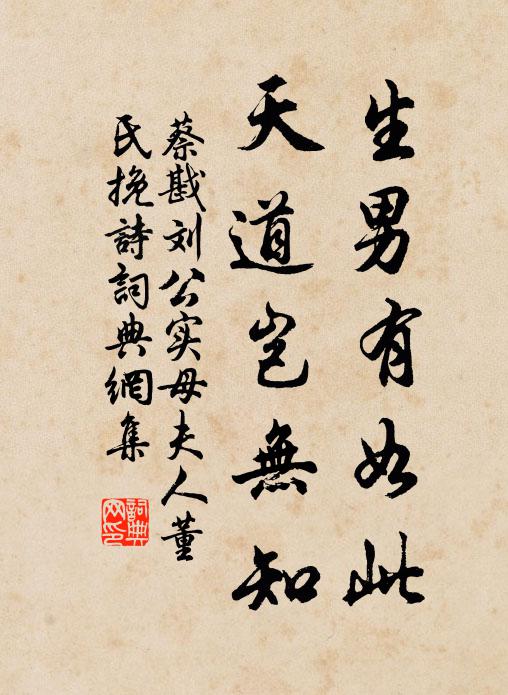 生男有如此
天道岂無知
蔡戡刘公实母夫人董
氏挽詩詞典網集
詞典
网印